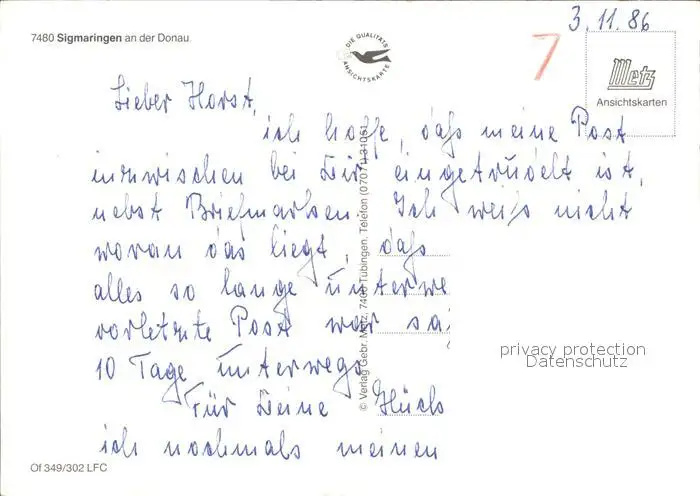 3.11.86
7480 Sigmaringen an der Donau.
DIE QUALITÄTS
ANSICHTSKARTE
7
Metz
Ansichtskarten
Lieber Horst,
ich hoffe, daß meine Post
inzwischen bei Dir eingetrudelt ist,
nebst Briefmarken. Ich weiß nicht
woran das liegt, daß
alles so lange unterwe
vorletzte Post war sa
10 Tage unterwegs
Für Deine Glück
ich nochmals meinen
© Verlag Gebr. Metz, 7400 Tübingen, Telefon (07071) 31051
privacy protection
Datenschutz
Of 349/302 LFC